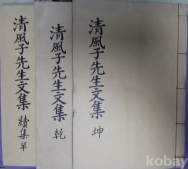 清風子先生文集 坤
清風子先生文集 乾
清風子先生文集 續集 單
kobay